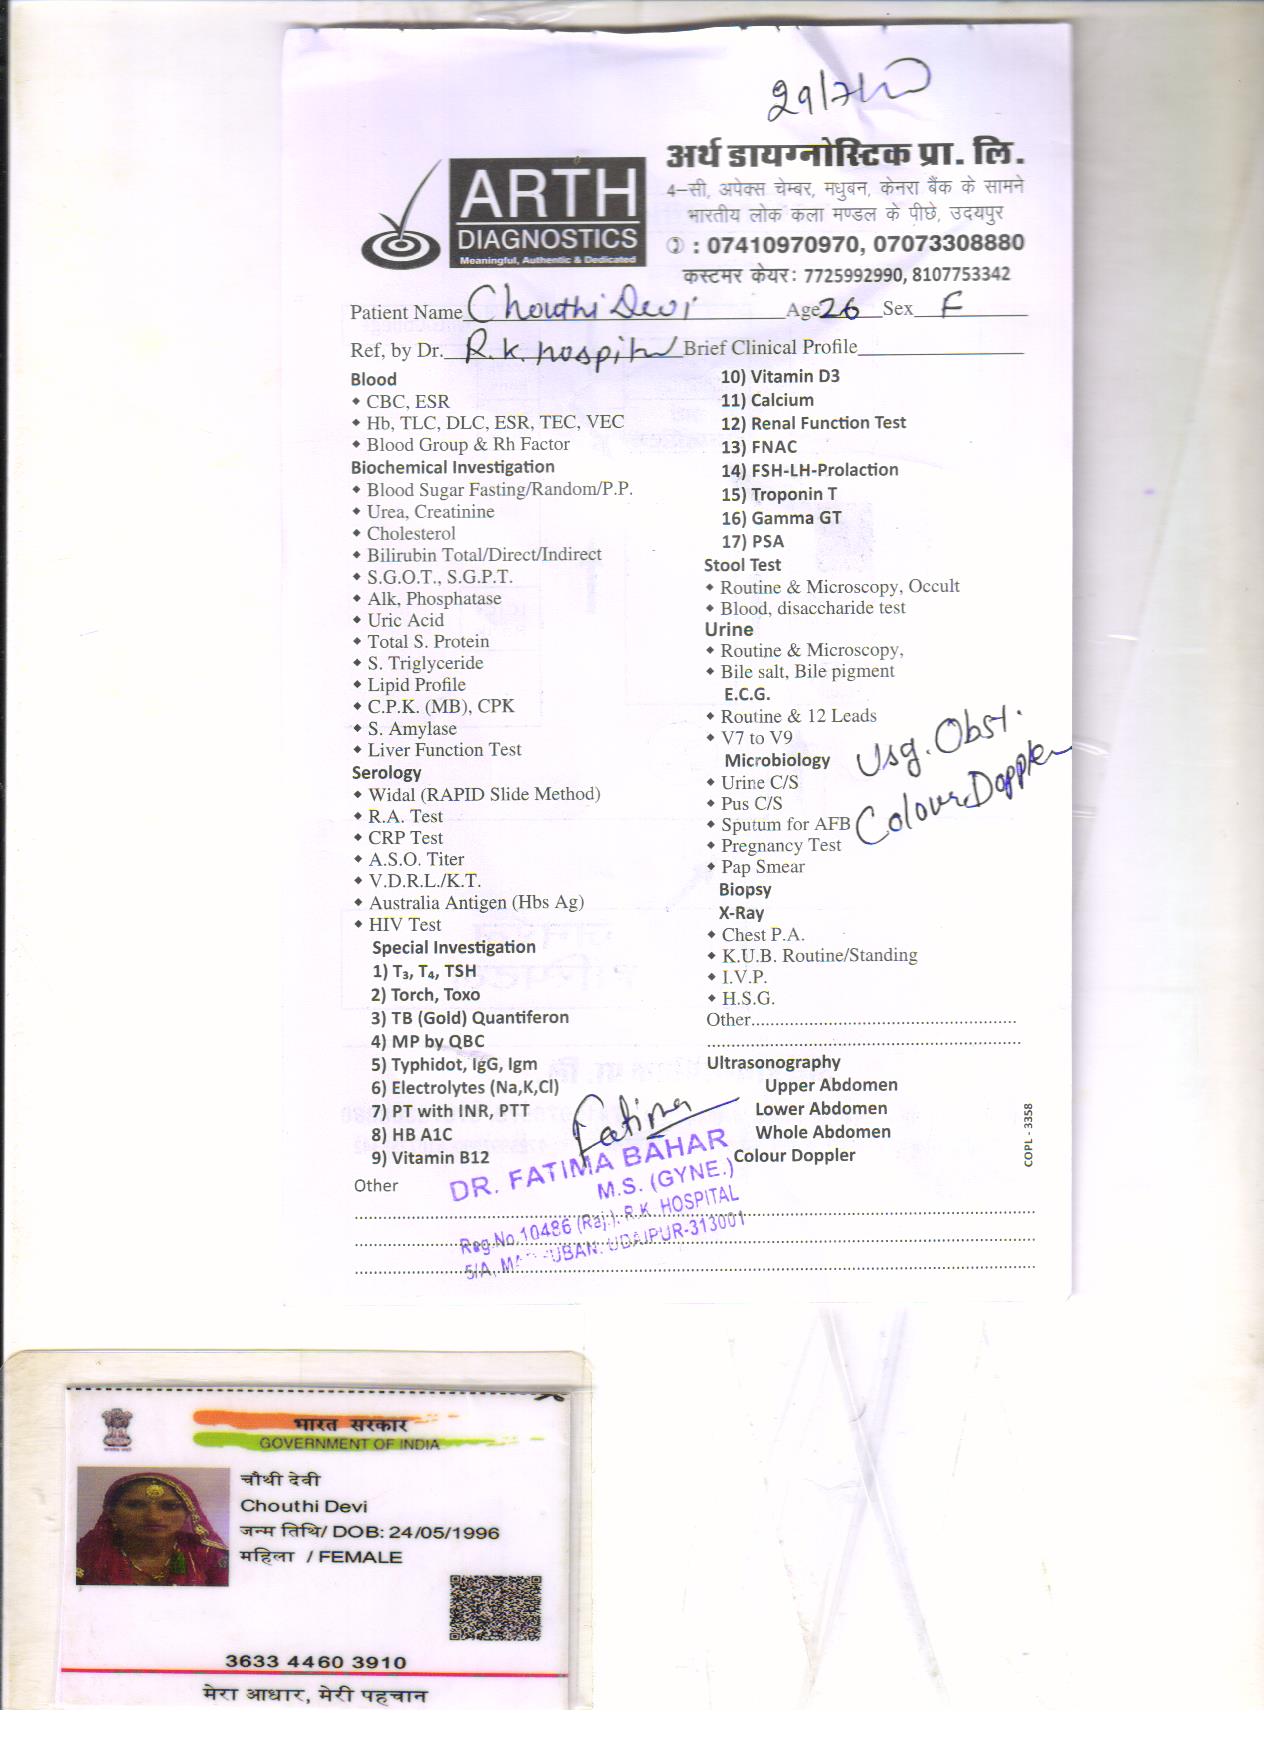 29/7/
अर्थ डायग्नोस्टिक प्रा. लि.
ARTH
DIAGNOSTICS
Meaningful, Authentic & Dedicated
4-सी, अपेक्स चेम्बर, मधुबन, केनरा बैंक के सामने
भारतीय लोक कला मण्डल के पीछे, उदयपुर
: 07410970970, 07073308880
कस्टमर केयर: 7725992990, 8107753342
Patient Name Chouthi Devi Age 26 Sex F
Ref, by Dr. R.K. Hospital Brief Clinical Profile
Blood
CBC, ESR
Hb, TLC, DLC, ESR, TEC, VEC
Blood Group & Rh Factor
Biochemical Investigation
Blood Sugar Fasting/Random/P.P.
Urea, Creatinine
Cholesterol
Bilirubin Total/Direct/Indirect
S.G.O.T., S.G.P.T.
Alk, Phosphatase
Uric Acid
Total S. Protein
S. Triglyceride
Lipid Profile
C.P.K. (MB), CPK
S. Amylase
Liver Function Test
Serology
Widal (RAPID Slide Method)
R.A. Test
CRP Test
A.S.O. Titer
V.D.R.L./K.T.
Australia Antigen (Hbs Ag)
HIV Test
Special Investigation
1) T₃, T₄, TSH
2) Torch, Toxo
3) TB (Gold) Quantiferon
4) MP by QBC
5) Typhidot, IgG, Igm
6) Electrolytes (Na,K,Cl)
7) PT with INR, PTT
8) HB A1C
9) Vitamin B12
Other
10) Vitamin D3
11) Calcium
12) Renal Function Test
13) FNAC
14) FSH-LH-Prolaction
15) Troponin T
16) Gamma GT
17) PSA
Stool Test
Routine & Microscopy, Occult
Blood, disaccharide test
Urine
Routine & Microscopy,
Bile salt, Bile pigment
E.C.G.
Routine & 12 Leads
V7 to V9
Microbiology
Urine C/S
Pus C/S
Sputum for AFB
Pregnancy Test
Pap Smear
Biopsy
X-Ray
Chest P.A.
K.U.B. Routine/Standing
I.V.P.
H.S.G.
Other
Ultrasonography
Upper Abdomen
Lower Abdomen
Whole Abdomen
Colour Doppler
COPL - 3358
Usg. Obst.
Colour Doppler
Fatima
DR. FATIMA BAHAR
M.S. (GYNE.)
Reg.No.10486 (Raj.). R.K. HOSPITAL
5/A, UDAIPUR-313001
भारत सरकार
GOVERNMENT OF INDIA
चौथी देवी
Chouthi Devi
जन्म तिथि/ DOB: 24/05/1996
महिला / FEMALE
3633 4460 3910
मेरा आधार, मेरी पहचान